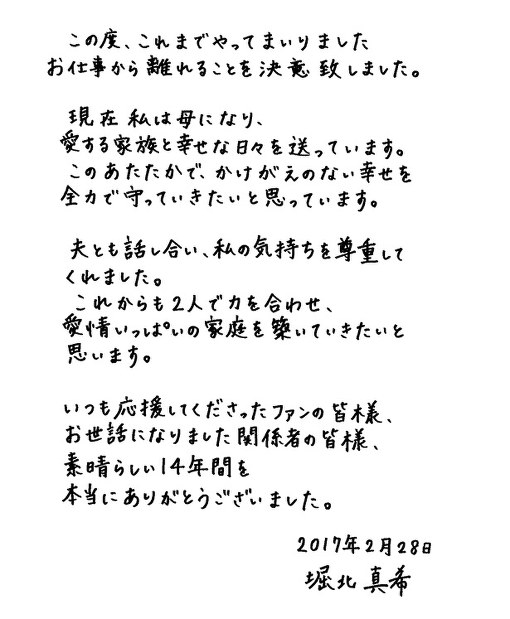 この度、これまでやってまいりました
お仕事から離れることを決意致しました。
現在私は母になり、
愛する家族と幸せな日々を送っています。
このあたたかで、かけがえのない幸せを
全力で守っていきたいと思っています。
夫とも話し合い、私の気持ちを尊重して
くれました。
これからも2人で力を合わせ、
愛情いっぱいの家庭を築いていきたいと
思います。
いつも応援してくださったファンの皆様、
お世話になりました関係者の皆様、
素晴らしい14年間を
本当にありがとうございました。
2017年2月28日
堀北真希